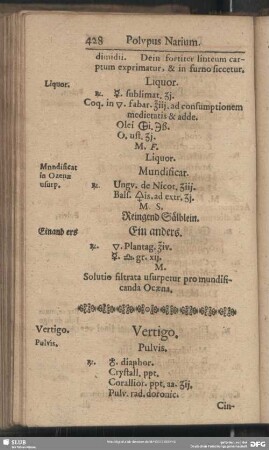 428 Polypus Narium.
dimidii. Dein fortiter linteum car-
ptum exprimatur, & in furno siccetur.
Liquor. Liquor.
℞. ☿. sublimat. ʒj.
Coq. in ▽. fabar. ℥iij. ad consumptionem
medietatis & adde.
Olei
O. ust. ʒj.
M. F.
Liquor.
Mundificat Mundificar.
in Ozena
usurp. ℞. Ungv. de Nicot. ℥iij.
Bals. ad extr. ʒj.
M. S.
Reingend Sälblein.
Einand ers Ein anders.
℞. ▽. Plantag. ℥iv.
☿. gr. xij.
M.
Solutio filtrata usurpetur pro mundifi-
canda Ocæna.
Vertigo. Vertigo.
Pulvis. Pulvis.
℞. ♁. diaphor.
Crystall. ppt.
Corallior. ppt. aa. ʒij.
Pulv. rad. doronic.
Cin-
SLUB